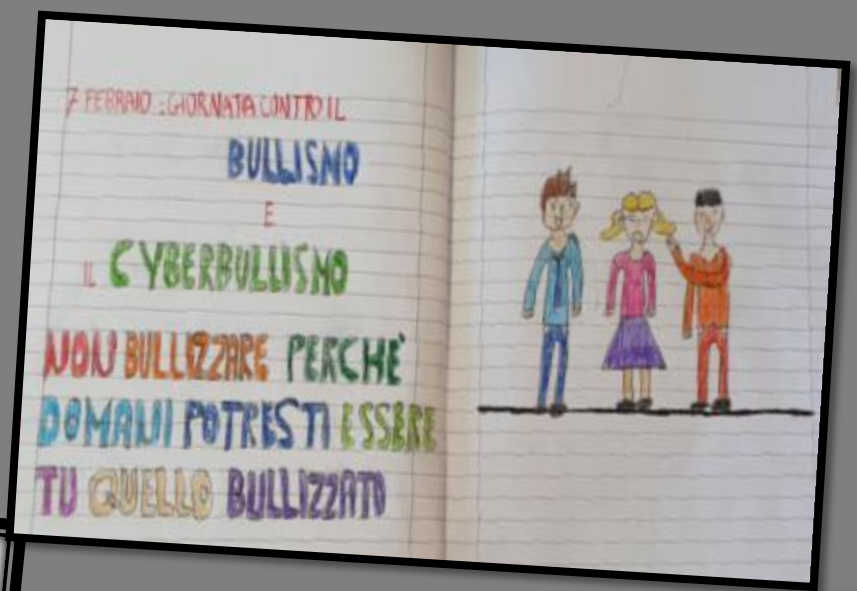 7 FEBBRAIO : GIORNATA CONTRO IL
BULLISMO
E
IL CYBERBULLISMO
NON BULLIZZARE PERCHÈ
DOMANI POTRESTI ESSERE
TU QUELLO BULLIZZATO